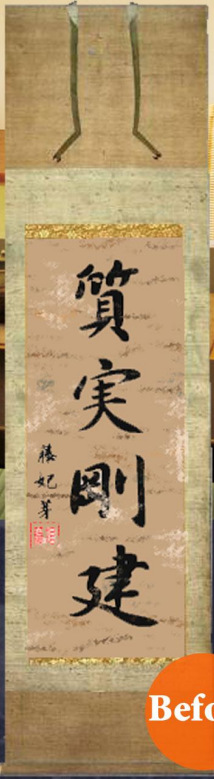 質実剛建
藤妃芽
Befo